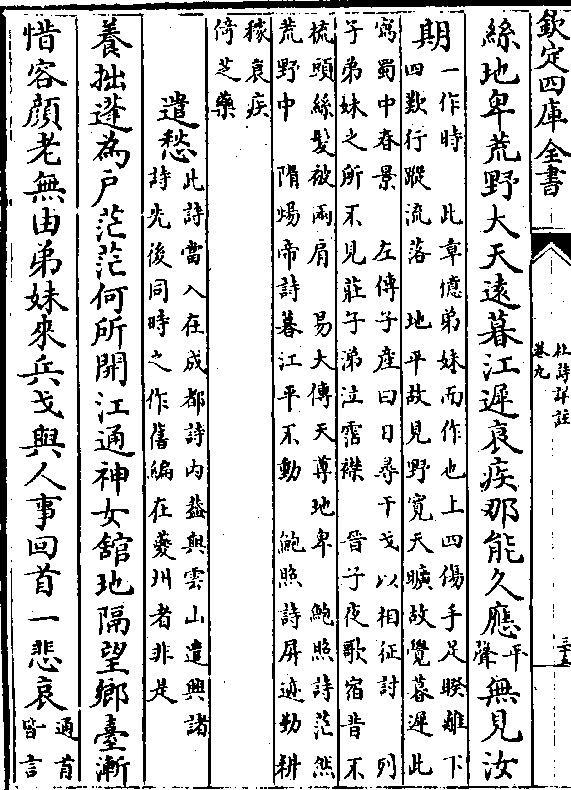 欽定四庫全書
杜詩詳註
卷九
三十五
絲地卑荒野大天遠暮江遲衰疾那能久應平聲無見汝
期一作時 此章憶弟妹而作也上四傷手足睽離下
四歎行蹤流落 地平故見野寬天曠故覺暮遲此
寫蜀中春景 左傳子產曰日尋干戈以相征討 列
子弟妹之所不見莊子涕泣霑襟 晉子夜歌宿昔不
梳頭絲髮被兩肩 易大傳天尊地卑 鮑照詩茫然
荒野中 隋煬帝詩暮江平不動 鮑照詩屏迹勤耕
稼衰疾
倚芝藥
遣愁此詩當入在成都詩內葢與雲山遣興諸
詩先後同時之作舊編在夔州者非是
養拙蓬為戶茫茫何所開江通神女館地隔望鄉臺漸
惜容顏老無由弟妹來兵戈與人事回首一悲哀通首
皆言